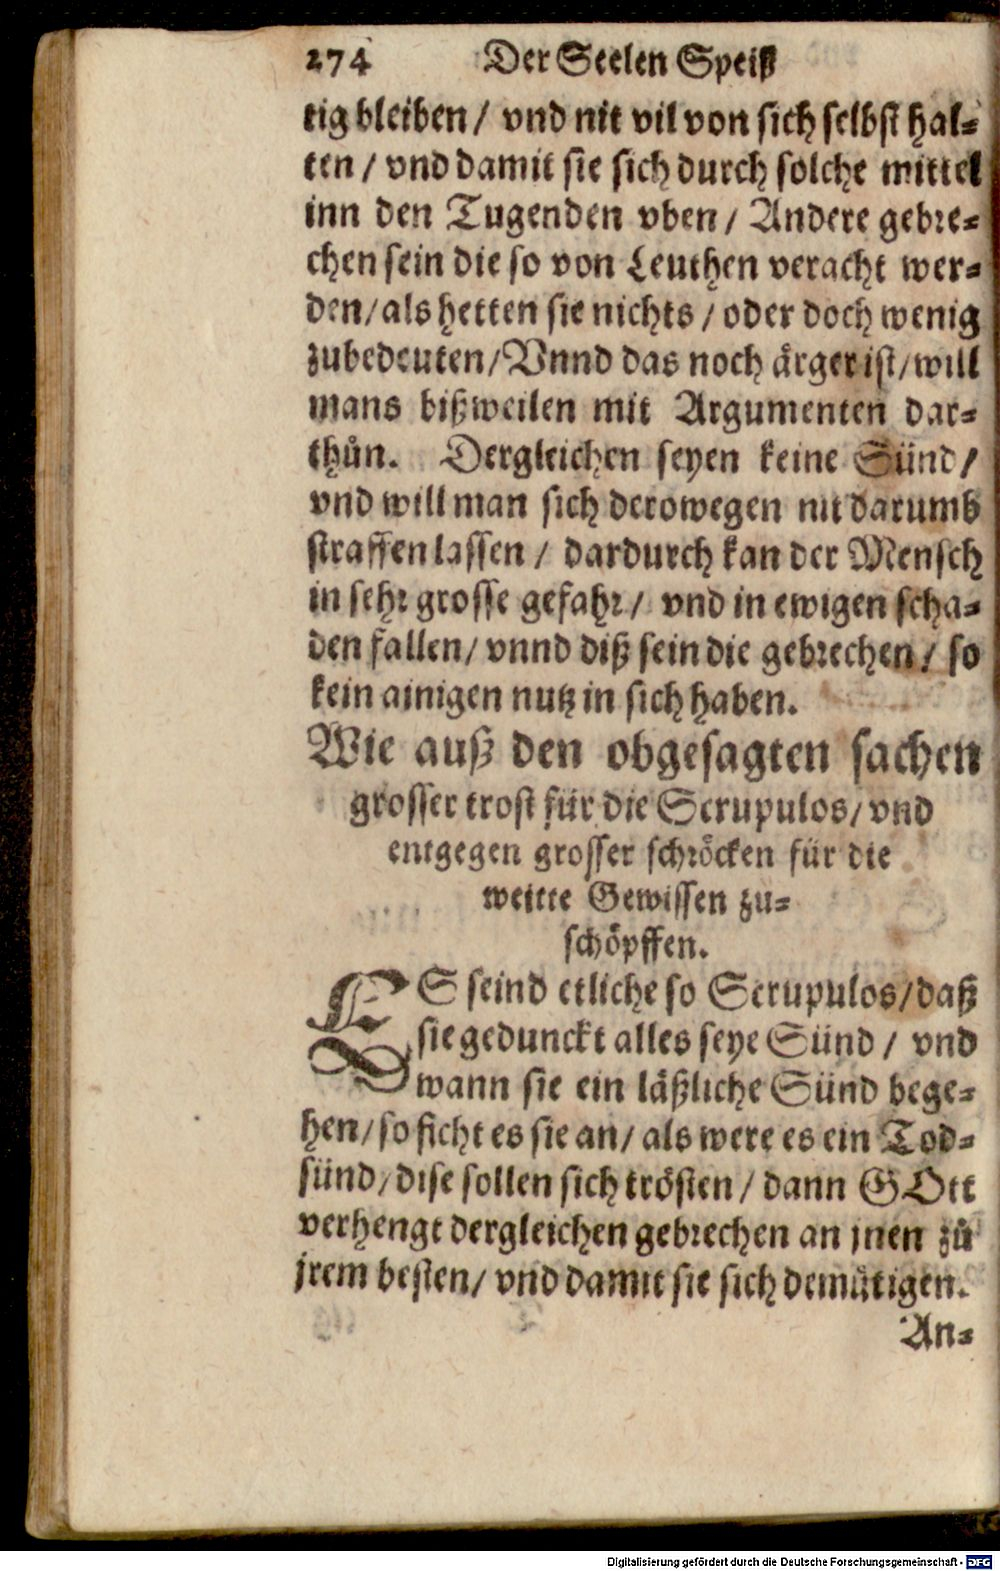 274 Der Seelen Speiß
tig bleiben / vnd nit vil von sich selbst hal⸗
ten / vnd damit sie sich durch solche mittel
inn den Tugenden vben / Andere gebre⸗
chen sein die so von Leuthen veracht wer⸗
den / als hetten sie nichts / oder doch wenig
zubedeuten / Vnnd das noch ärger ist / will
mans bißweilen mit Argumenten dar⸗
thůn. Dergleichen seyen keine Sünd /
vnd will man sich derowegen nit darumb
straffen lassen / dardurch kan der Mensch
in sehr grosse gefahr / vnd in ewigen scha⸗
den fallen / vnnd diß sein die gebrechen / so
kein ainigen nutz in sich haben.
Wie auß den obgesagten sachen
grosser trost für die Scrupulos / vnd
entgegen grosser schröcken für die
weitte Gewissen zu⸗
schöpffen.
ES seind etliche so Scrupulos / daß
sie gedunckt alles seye Sünd / vnd
wann sie ein läßliche Sünd bege⸗
hen / so ficht es sie an / als were es ein Tod⸗
sünd / dise sollen sich trösten / dann GOtt
verhengt dergleichen gebrechen an jnen zů
jrem besten / vnd damit sie sich demütigen.
An⸗
Digitalisierung gefördert durch die Deutsche Forschungsgemeinschaft - DFG